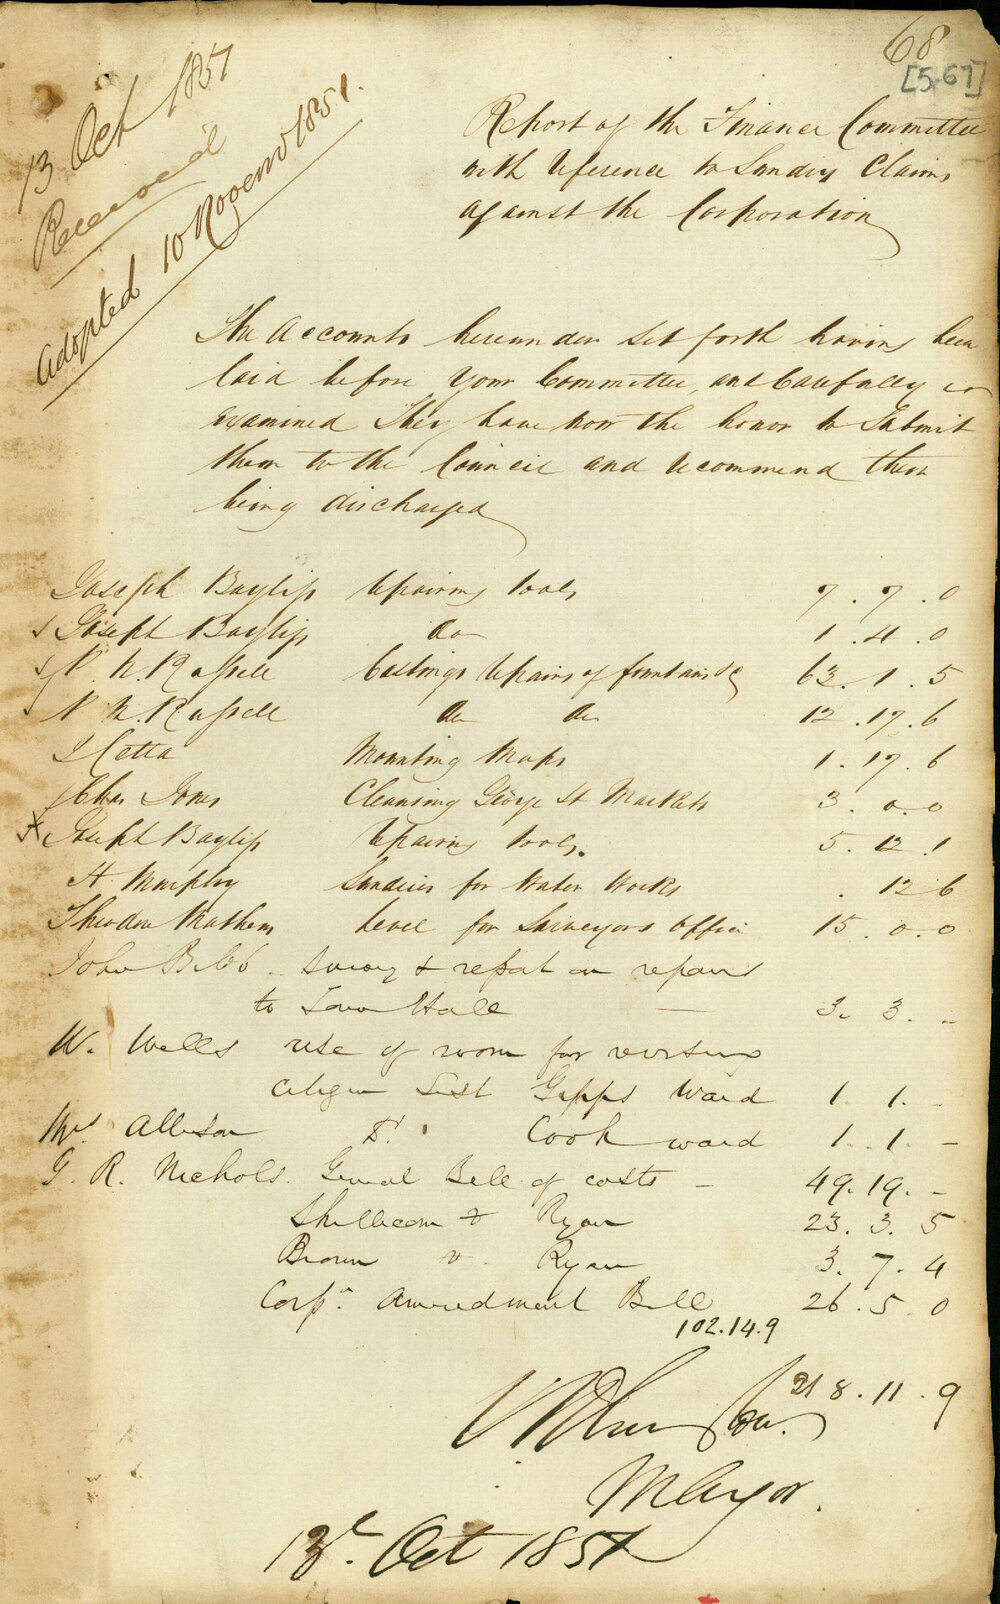 68
[567]
13 Oct 1851
Received
adopted 10 Novemr 1851.
Report of the Finance Committee
with reference to Sundry Claims
against the Corporation
The Accounts hereunder set forth having been
laid before your Committee, and Carefully
examined They have now the honor to Submit
them to the Council and recommend their
being discharged
Joseph Bayliss repairing tools 7 . 7 . 0
Joseph Bayliss do 1 . 4 . 0
P. N. Russell Castings repairs of fountains &c 63 . 1 . 5
P. N. Russell do do 12 . 17 . 6
J Cetta Mounting Maps 1 . 17 . 6
Chas Jones Cleansing George St Markets 3 . 0 . 0
x Joseph Bayliss repairing tools. 5 . 12 . 1
H Murphy Sundries for Water Works . 12 6
Theodore Mathews level for Surveyors Office 15 . 0 . 0
John Bibb Survey & report on repairs
to Town Hall 3. 3. -
W. Wells use of room for revising
citizen List Gipps Ward 1 1. -
Mrs. Allison Do. Cook ward 1. 1. -
G. R. Nichols. General Bill of costs - 49. 19. -
v Ryan 23. 3. 5
Brown v Ryan 3. 7. 4
Corpn. Amendment Bill 26. 5. 0
102.14.9
218 . 11 . 9
Mayor.
13th Oct 1851